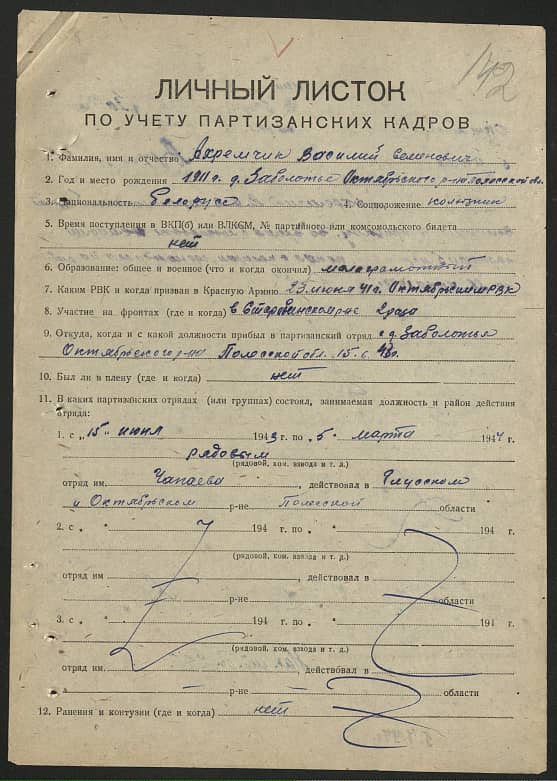 142
ЛИЧНЫЙ ЛИСТОК
ПО УЧЕТУ ПАРТИЗАНСКИХ КАДРОВ
1. Фамилия, имя и отчество Ахремчик Василий Семенович
2. Год и место рождения 1911 г. д. Заболотье Октябрьского р-на Полесской обл.
3. Национальность Белорус 4. Соцположение колхозник
5. Время поступления в ВКП(б) или ВЛКСМ, № партийного или комсомольского билета
нет
6. Образование: общее и военное (что и когда окончил) малограмотный
7. Каким РВК и когда призван в Красную Армию 23 июня 41 г. Октябрьским РВК
8. Участие на фронтах (где и когда) в Старобинском р-не 2 дня
9. Откуда, когда и с какой должности прибыл в партизанский отряд с д. Заболотья
Октябрьского р-на Полесской обл. 15.6. 43 г.
10. Был ли в плену (где и когда) нет
11. В каких партизанских отрядах (или группах) состоял, занимаемая должность и район действия
отряда:
1. с „ 15 " июня 1943 г. по „ 5 " марта 1944 г.
рядовым
(рядовой, ком. взвода и т. д.)
отряд им Чапаева, действовал в Глусском
и Октябрьском р-не Полесской области
2. с „ " 194 г. по „ " 194 г.
(рядовой, ком. взвода и т. д.)
отряд им , действовал в
р-не области
3. с „ " 194 г. по „ " 194 г.
(рядовой, ком. взвода и т. д.)
отряд им. действовал в
р-не области
12. Ранения и контузии (где и когда) нет